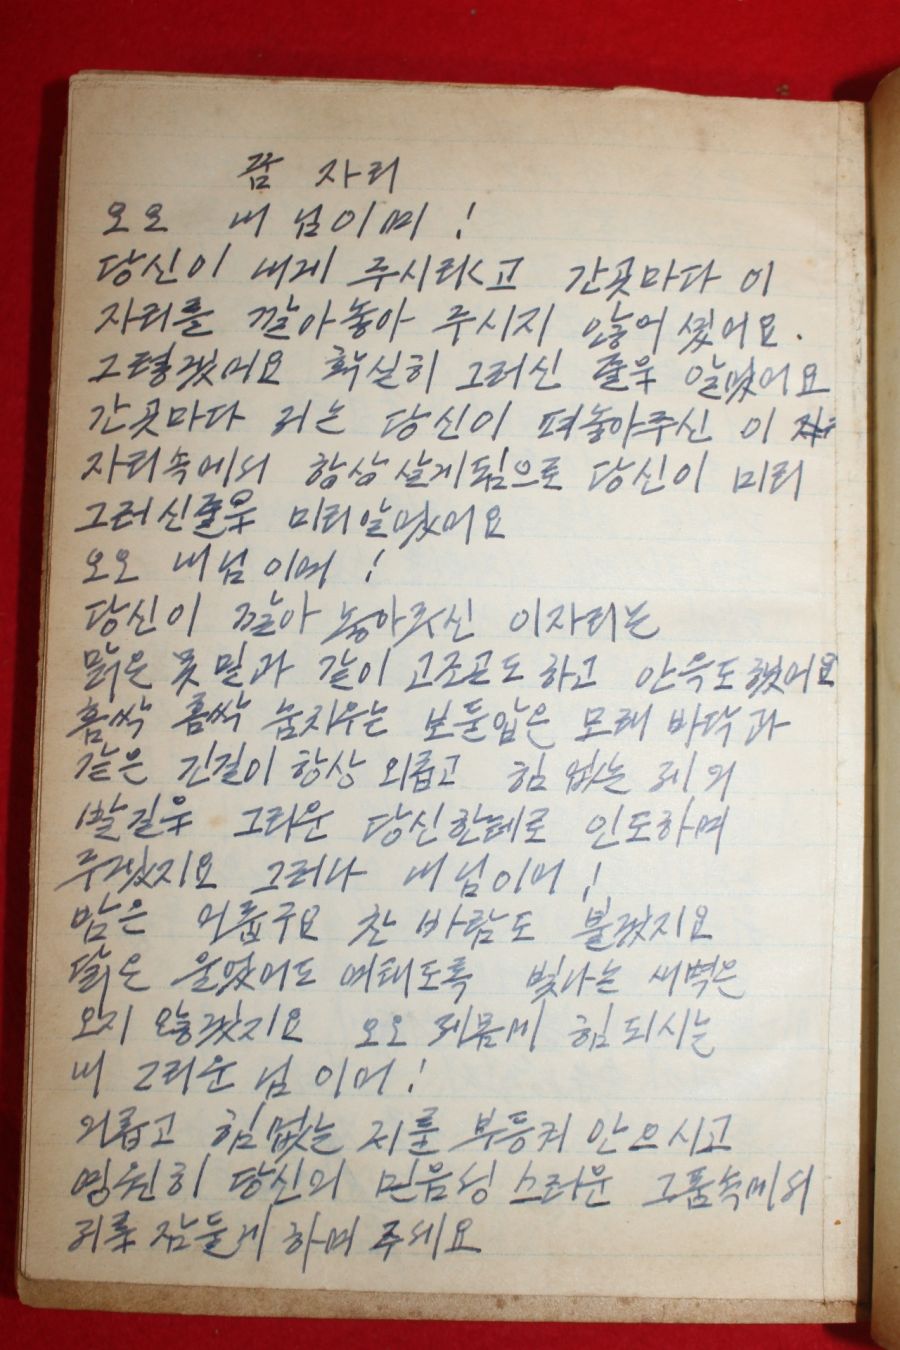 꿈 자리
오오 내 님이여 !
당신이 내게 주시려고 간곳마다 이
자리를 깔아놓아 주시지 않어셨어요.
그렇겠어요 확실히 그러신 줄을 알었어요
간곳마다 저는 당신이 펴놓아주신 이
자리속에서 항상 살게됨으로 당신이 미리
그러신줄을 미리알었어요
오오 내님이여 !
당신이 깔아 놓아주신 이자리는
맑은 못 밑과 같이 고조곤도 하고 안윽도했어요
홈싹 홈싹 숨치우는 보들압은 모래 바닥과
같은 긴길이 항상 외롭고 힘없는 제의
발길을 그리운 당신한테로 인도하여
주겠지요 그러나 내님이여 !
밤은 어둡구요 찬 바람도 불겠지요
닭은 울었어도 여태도록 빛나는 새벽은
오지 않겠지요 오오 제몸에 힘되시는
내 그리운 님이여 !
외롭고 힘없는 저를 부등켜 안으시고
영원히 당신의 믿음성스러운 그품속에서
저를 잠들게 하여 주세요